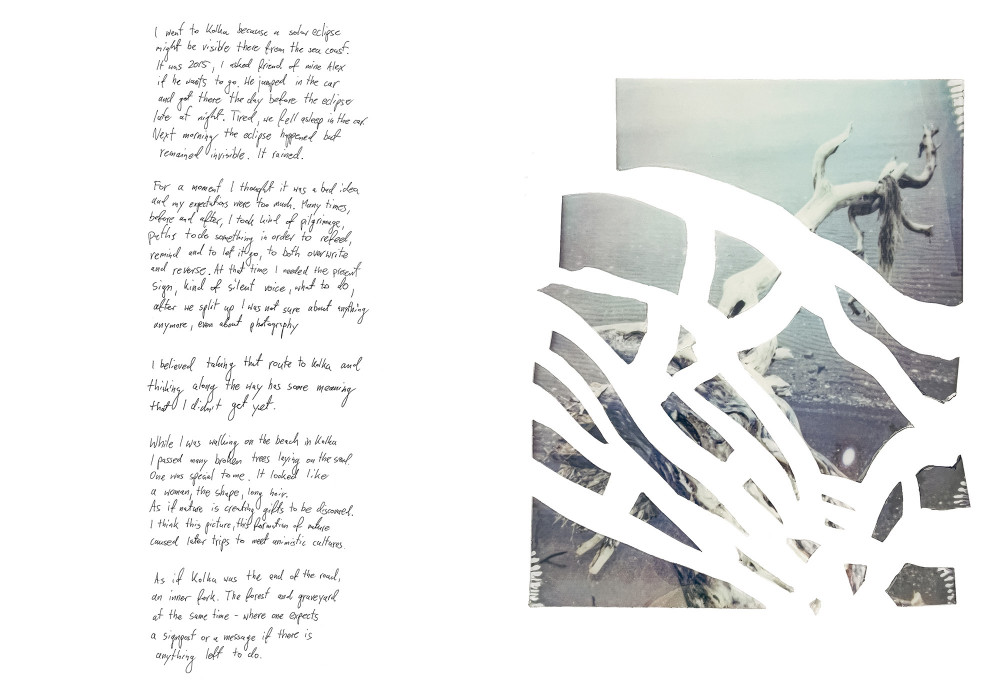 I went to Kolka because a solar eclipse
might be visible there from the sea coast.
It was 2015, I asked friend of mine Alex
if he wants to go. He jumped in the car
and got there the day before the eclipse
late at night. Tired, we fell asleep in the car.
Next morning the eclipse happened but
remained invisible. It rained.
For a moment I thought it was a bad idea
and my expectations were too much. Many times,
before and after, I took kind of pilgrimage,
paths to do something in order to
remind and to let it go, to both overwrite
and reverse. At that time I needed the present
sign, kind of silent voice, what to do,
after we split up I was not sure about anything
anymore, even about photography
I believed taking that route to Kolka and
thinking along the way has some meaning
that I didn't get yet.
While I was walking on the beach in Kolka
I passed many broken trees laying on the sand.
One was special to me. It looked like
a woman, the shape, long hair.
As if nature is creating gifts to be discovered.
I think this picture, this formation of nature
caused later trips to meet animistic cultures.
As if Kolka was the end of the road,
an inner fork. The forest and graveyard
at the same time - where one expects
a signpost or a message if there is
anything left to do.